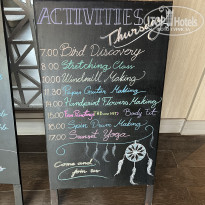 ACTIVITIES
Thursday
7.00 Bird Discovery
8.00 Stretching Class
10.00 Windmill Making
11.30 Paper Making
14.00 Handpaint Flowers Making
15.00 Body Fit
16.00 Spin Drum Making
17.00 Sunset Yoga
Come and
Join us
Top Hotels